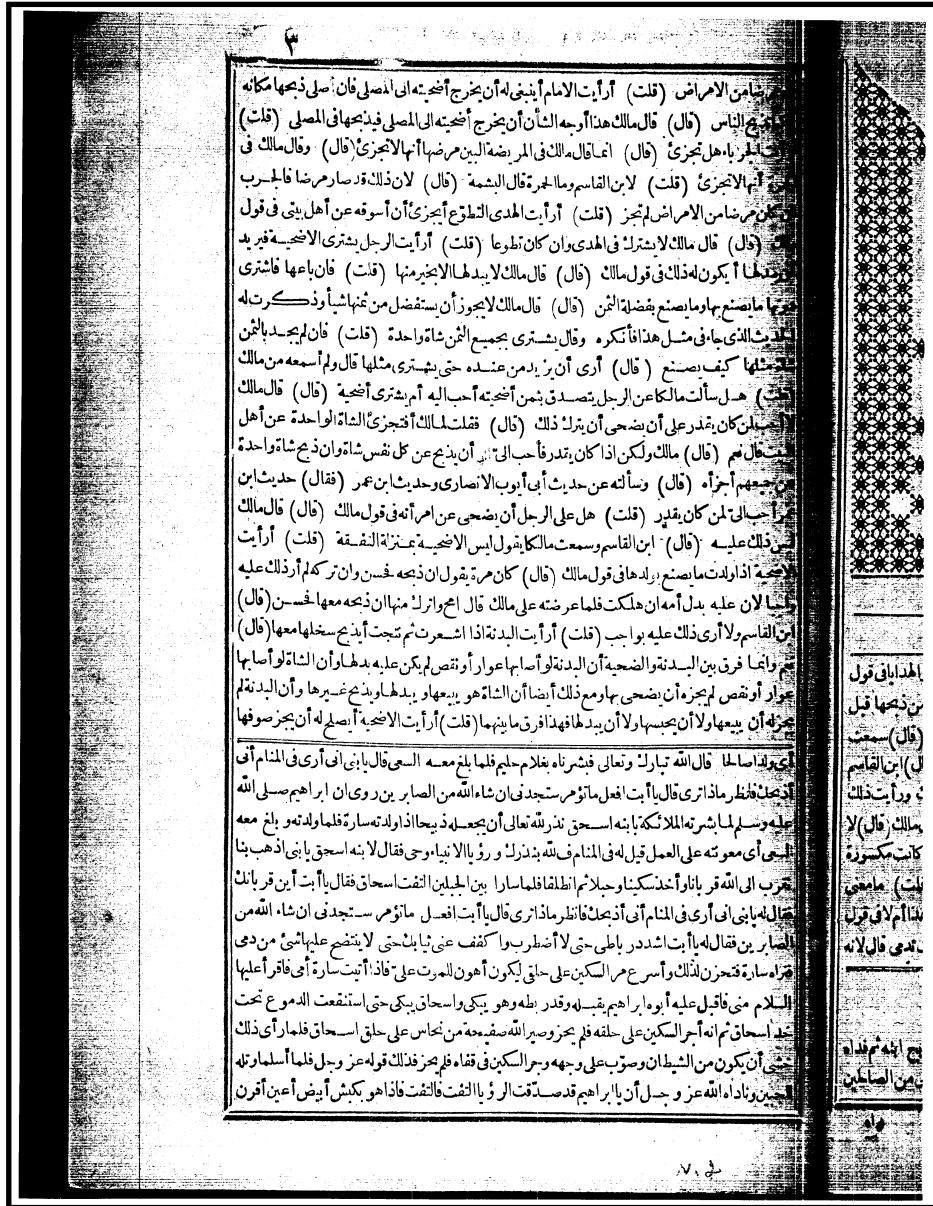 ٣
من الامراض (قلت) أرأيت الامام أينبغي له أن يخرج أضحيته الى المصلى فان صلى ذبحها مكانه
الناس (قال) قال مالك هذا أوجه الشأن أن يخرج أضحيته الى المصلى فيذبحها في المصلى (قلت)
الجرباء هل تجزئ (قال) انما قال مالك في المريضة البين مرضها أنها لا تجزئ (قال) وقال مالك في
أنها لا تجزئ (قلت) لابن القاسم وما الحمرة قال البشمة (قال) لان ذلك قد صار مرضا فالجرب
كان مرضا من الامراض لم تجز (قلت) أرأيت الهدى التطوع أيجزئ أن أسوقه عن أهل بيتى في قول
(قال) قال مالك لا يشترك في الهدى وان كان تطوعا (قلت) أرأيت الرجل يشترى الاضحية فيريد
يبدلها أيكون له ذلك في قول مالك (قال) قال مالك لا يبدلها الا بخير منها (قلت) فان باعها فاشترى
ما يصنع بها وما يصنع بفضلة الثمن (قال) قال مالك لا يجوز أن يستفضل من ثمنها شيأ وذكرت له
الحديث الذى جاء في مثل هذا فأنكره وقال يشترى بجميع الثمن شاة واحدة (قلت) فان لم يجد بالثمن
شاة مثلها كيف يصنع (قال) أرى أن يزيد من عنده حتى يشترى مثلها قال ولم أسمعه من مالك
(قلت) هل سألت مالكا عن الرجل يتصدق بثمن أضحيته أحب اليه أم يشترى أضحية (قال) قال مالك
لا أحب لمن كان يقدر على أن يضحى أن يترك ذلك (قال) فقلت لمالك أفتجزئ الشاة الواحدة عن أهل
البيت قال نعم (قال) مالك ولكن اذا كان يقدر فأحب الىّ أن يذبح عن كل نفس شاة وان ذبح شاة واحدة
عن جميعهم أجزأه (قال) وسألته عن حديث أبى أيوب الانصارى وحديث ابن عمر (فقال) حديث ابن
عمر أحب الىّ لمن كان يقدر (قلت) هل على الرجل أن يضحى عن امرأته في قول مالك (قال) قال مالك
ليس ذلك عليه (قال) ابن القاسم وسمعت مالكا يقول ليس الاضحية بمنزلة النفقة (قلت) أرأيت
الاضحية اذا ولدت ما يصنع بولدها في قول مالك (قال) كان مرة يقول ان ذبحه فحسن وان تركه لم أر ذلك عليه
واجبا لان عليه بدل أمه ان هلكت فلما عرضته على مالك قال امح واترك منها ان ذبحه معها فحسن (قال)
ابن القاسم ولا أرى ذلك عليه بواجب (قلت) أرأيت البدنة اذا اشعرت ثم نتجت أيذبح سخلها معها (قال)
نعم وانما فرق بين البدنة والضحية أن البدنة لو أصابها عوار أو نقص لم يكن عليه بدلها وأن الشاة لو أصابها
عوار أو نقص لم يجزه أن يضحى بها ومع ذلك أيضا أن الشاة هو يبيعها ويبدلها ويذبح غيرها وأن البدنة لم
يجزله أن يبيعها ولا أن يحبسها ولا أن يبدلها فهذا فرق ما بينهما (قلت) أرأيت الاضحية أيصلح له أن يجز صوفها
أى ولدا صالحا قال الله تبارك وتعالى فبشرناه بغلام حليم فلما بلغ معه السعى قال يا بنى انى أرى في المنام أنى
أذبحك فانظر ماذا ترى قال يا أبت افعل ما تؤمر ستجدنى ان شاء الله من الصابرين روى ان ابراهيم صلى الله
عليه وسلم لما بشرته الملائكة بابنه اسحق نذر لله تعالى أن يجعله ذبيحا اذا ولدته سارة فلما ولدته وبلغ معه
السعى أى معونته على العمل قيل له في المنام ف لله بنذرك ورؤيا الانبياء وحى فقال لابنه اسحق يا بنى اذهب بنا
نتقرب الى الله قربانا وأخذ سكينا وحبلا ثم انطلقا فلما سارا بين الجبلين التفت اسحاق فقال يا أبت أين قربانك
فقال له يا بنى انى أرى في المنام أنى أذبحك فانظر ماذا ترى قال يا أبت افعل ما تؤمر ستجدنى ان شاء الله من
الصابرين فقال له يا أبت اشدد رباطى حتى لا أضطرب واكفف عنى ثيابك حتى لا ينتضح عليها شئ من دمى
فتراه سارة فتحزن لذلك وأسرع مر السكين على حلقى ليكون أهون للموت علىّ فاذا أتيت سارة أمى فاقرأ عليها
السلام منى فأقبل عليه أبوه ابراهيم يقبله وقد ربطه وهو يبكى واسحاق يبكى حتى استنقعت الدموع تحت
خد اسحاق ثم انه أجر السكين على حلقه فلم يحز وصير الله صفيحة من نحاس على حلق اسحاق فلما رأى ذلك
خشى أن يكون من الشيطان وصوّب على وجهه وجر السكين في قفاه فلم يحز فذلك قوله عز وجل فلما أسلما وتله
للجبين وناداه الله عز وجل أن يا ابراهيم قد صدّقت الرؤيا التفت فالتفت فاذا هو بكبش أبيض أعين أقرن
الهدايا في قول
من ذبحها قبل
(قال) سمعت
ابن القاسم
ورأيت ذلك
مالك (قال) لا
كانت مكسورة
(قلت) ما معنى
هذا أم لا في قول
تدمى قال لانه
ابنه ثم فداه
من الصالحين